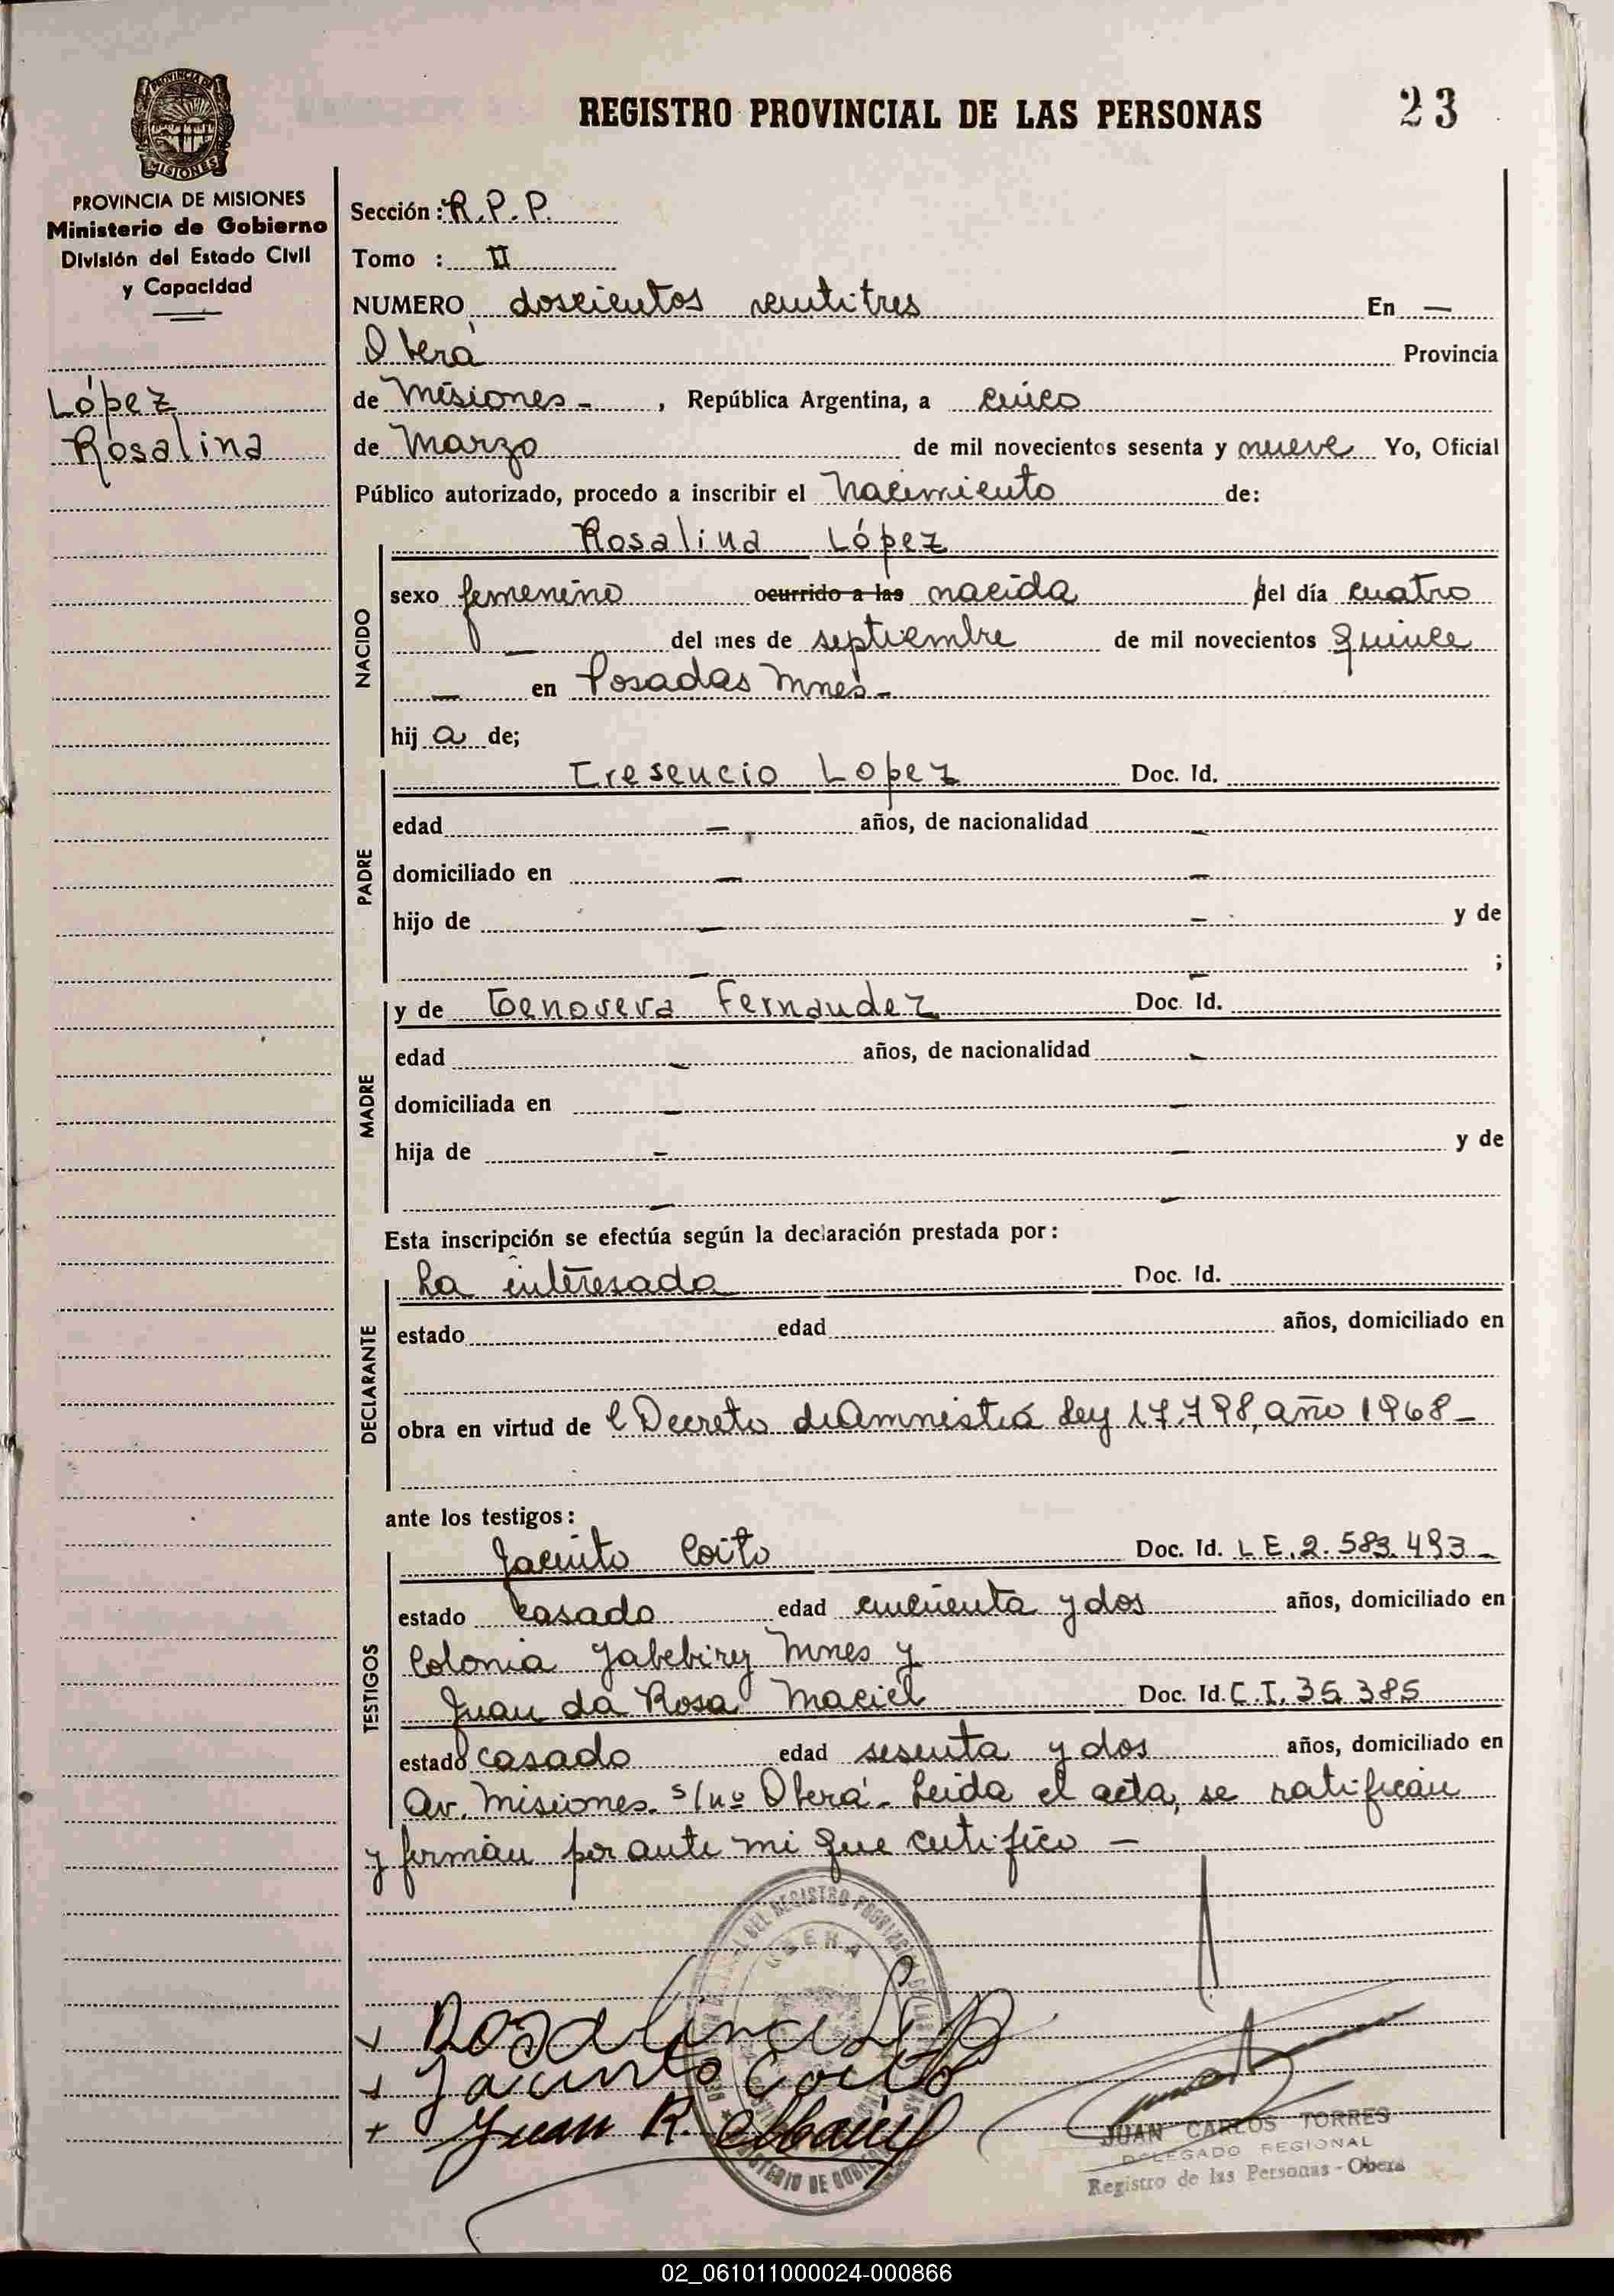 REGISTRO PROVINCIAL DE LAS PERSONAS 23
PROVINCIA DE MISIONES
MISIONES
PROVINCIA DE MISIONES
Ministerio de Gobierno
División del Estado Civil
y Capacidad
López
Rosalina
Sección : R.P.P.
Tomo : II
NUMERO doscientos veintitres En —
Oberá Provincia
de Misiones - , República Argentina, a cinco
de Marzo de mil novecientos sesenta y nueve Yo, Oficial
Público autorizado, procedo a inscribir el Nacimiento de:
Rosalina López
NACIDO
sexo femenino ocurrido a las nacida del día cuatro
— del mes de septiembre de mil novecientos quince
— en Posadas Mnes -
hij a de;
PADRE
Cresencio Lopez Doc. Id.
edad — años, de nacionalidad —
domiciliado en — —
hijo de — — y de
— — ;
MADRE
y de Genoveva Fernandez Doc. Id.
edad — años, de nacionalidad —
domiciliada en — —
hija de — — y de
— —
Esta inscripción se efectúa según la declaración prestada por :
DECLARANTE
La interesada Doc. Id.
estado edad años, domiciliado en
obra en virtud de l Decreto de Amnistia Ley 17.798, año 1968 -
ante los testigos :
TESTIGOS
Jacinto Coito Doc. Id. L E. 2. 583. 493 -
estado casado edad cincuenta y dos años, domiciliado en
Colonia Yabebiry Mnes y
Juan da Rosa Maciel Doc. Id. C. I. 35 385
estado casado edad sesenta y dos años, domiciliado en
Av. Misiones s/nº Oberá - Leida el acta, se ratifican
y firman por ante mi que certifico —
OBERA
Rosalina
Jacinto Coito
Juan R. Maciel
JUAN CARLOS TORRES
DELEGADO REGIONAL
Registro de las Personas - Oberá
02_061011000024-000866